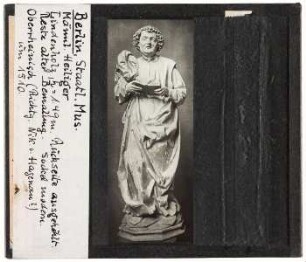 Berlin, Staatl. Mus.
Männl. Heiliger
Lindenholz h = 1,49 m. Rückseite ausgehöhlt
Reste alter Bemalung. Sockel modern.
Oberrheinisch (Richtg. Nik. v. Hagenau?)
um 1510